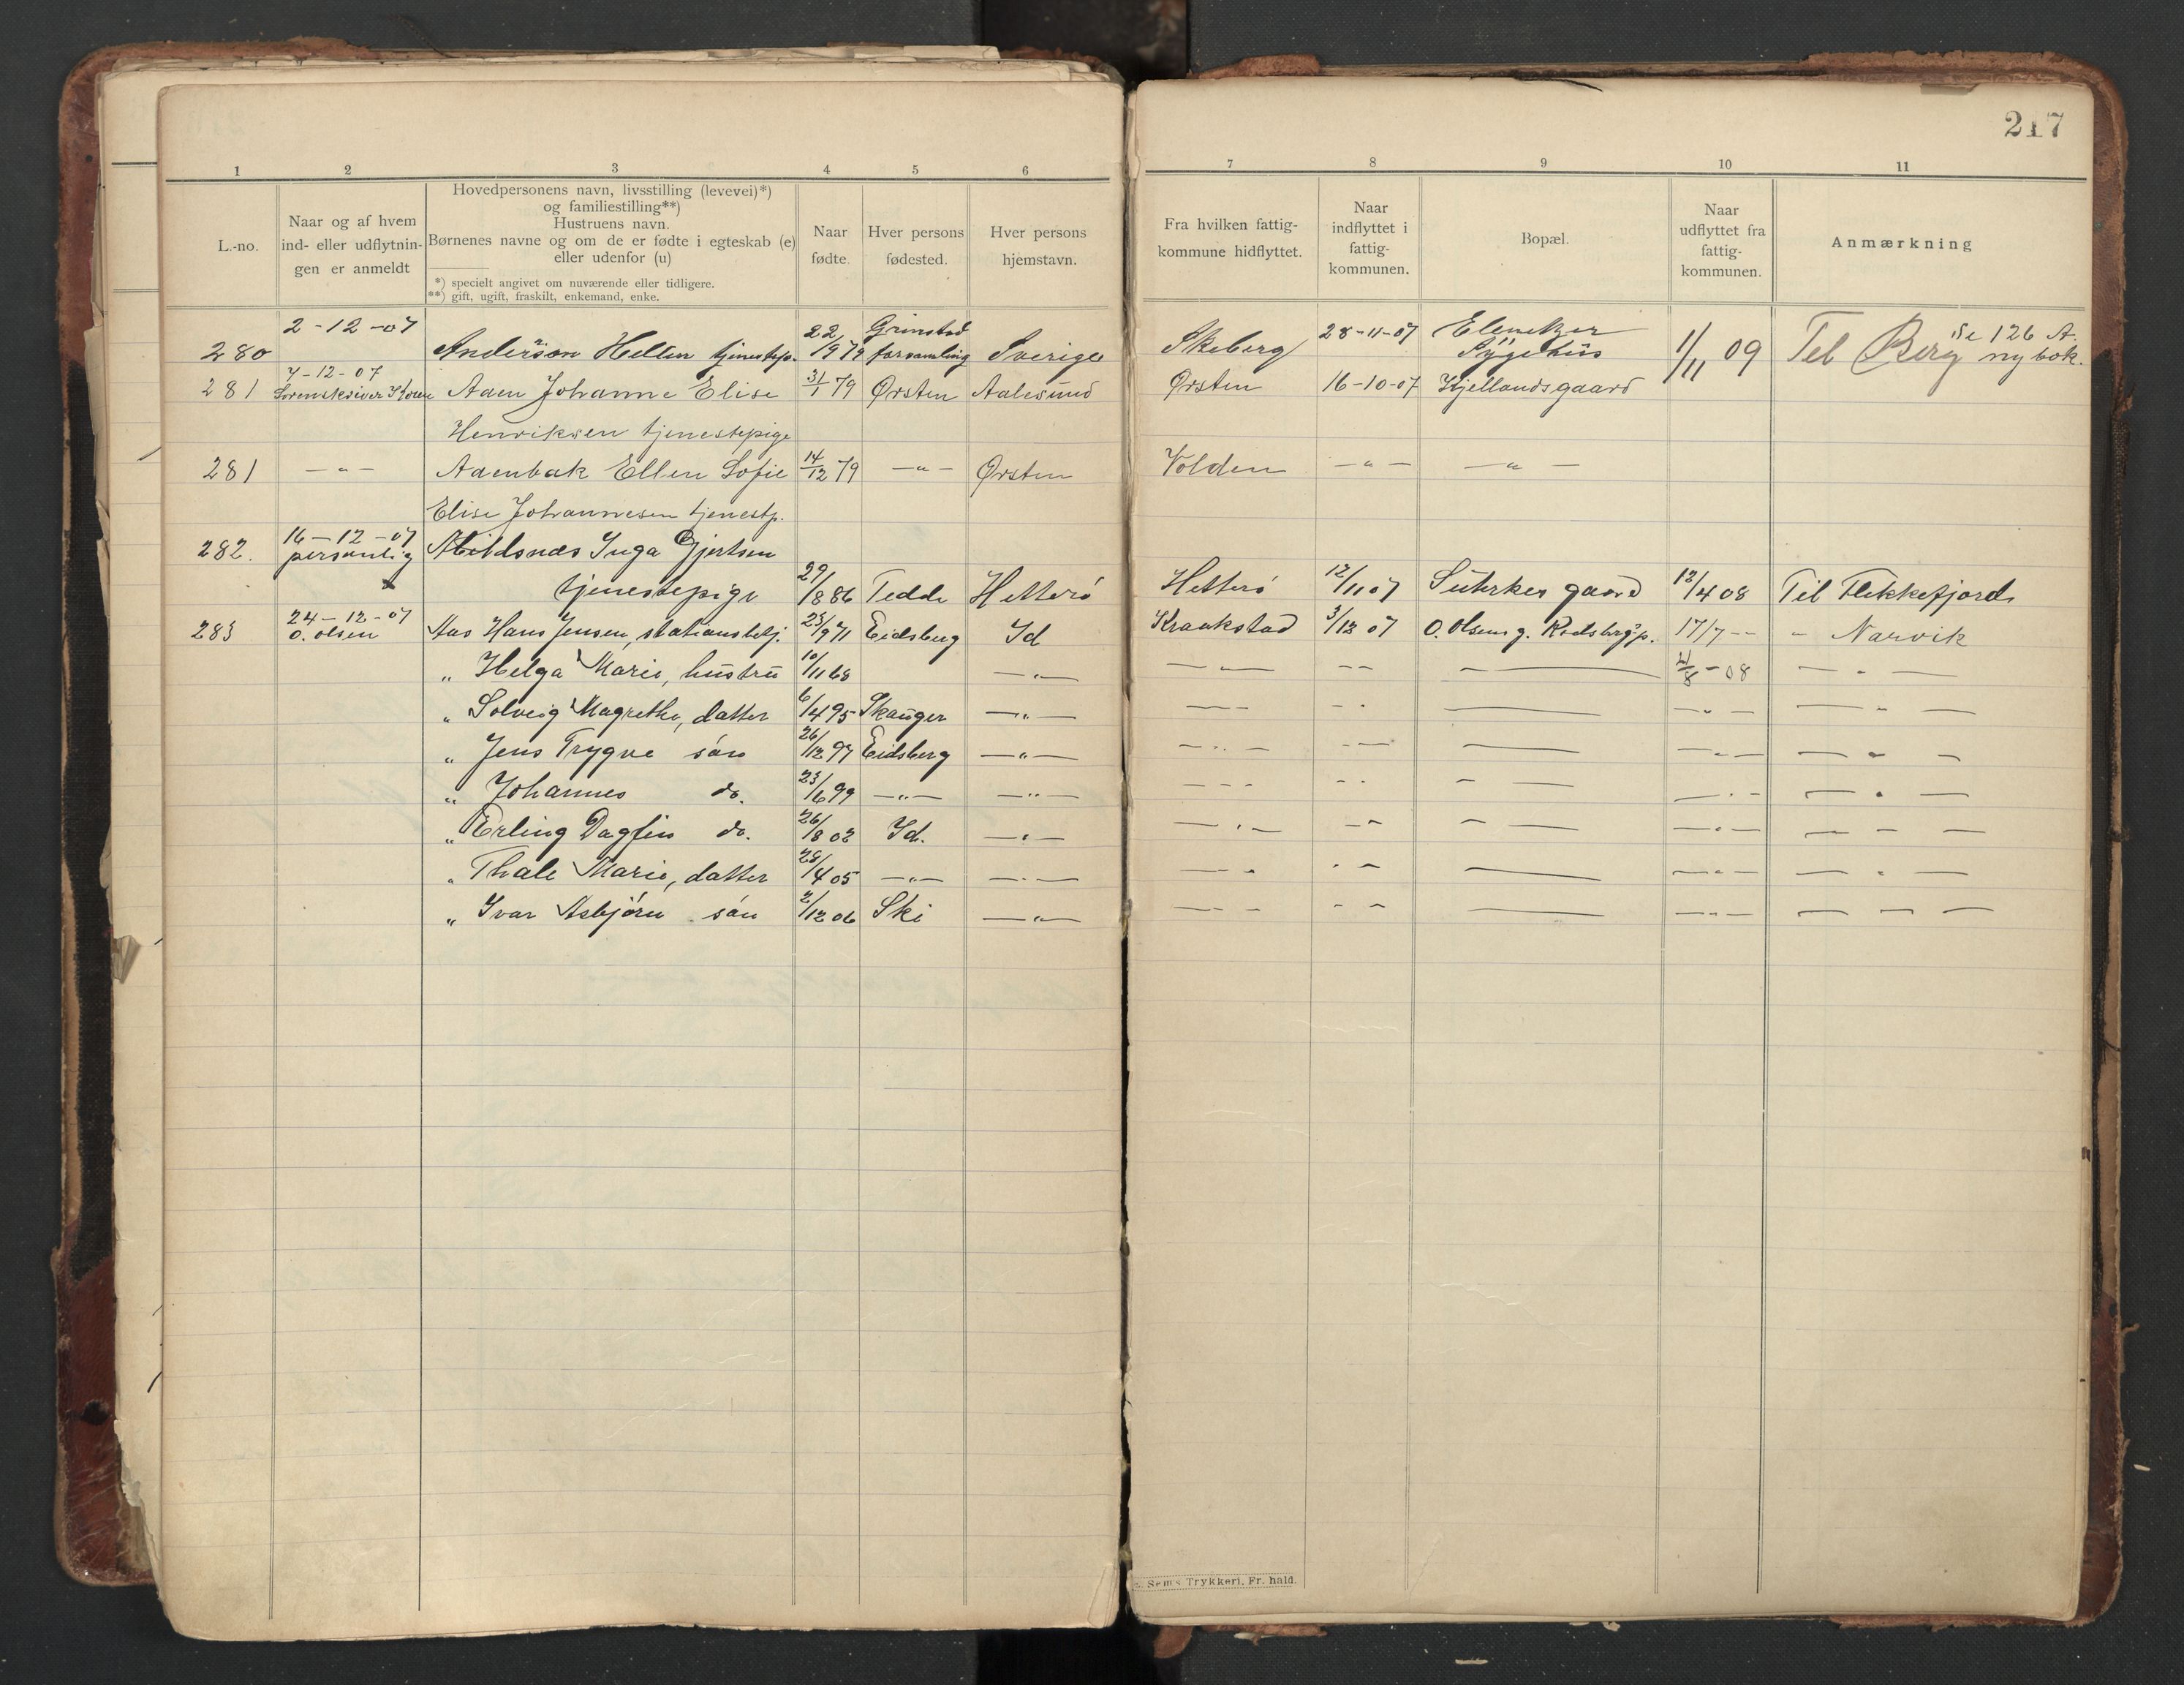 217
1 2 3 4 5 6 7 8 9 10 11
L.-no.
Naar og af hvem
ind- eller udflytnin-
gen er anmeldt
Hovedpersonens navn, livsstilling (levevei)*)
og familiestilling**)
Hustruens navn.
Børnenes navne og om de er fødte i egteskab (e)
eller udenfor (u)
*) specielt angivet om nuværende eller tidligere.
**) gift, ugift, fraskilt, enkemand, enke.
Naar
fødte.
Hver persons
fødested.
Hver persons
hjemstavn.
Fra hvilken fattig-
kommune hidflyttet.
Naar
indflyttet i
fattig-
kommunen.
Bopæl.
Naar
udflyttet fra
fattig-
kommunen.
Anmærkning
2-12-07 22 Grimstad 28-11-07 Se 126 A.
280 Anderson Hellen tjenestep. /9 79 forsamling Sverige Skeberg Sygehus 1/11 09 Tel Berg ny bok.
7-12-07
281 Sorenskriver Aaen Johanne Elise 31/1 79 Ørsten Aalesund Ørsten 16-10-07 Kjellandsgaard
Henriksen tjenestepige
281 — " — Aaenbak Ellen Sofie 14/12 79 — " — Ørsten Volden — " — — " —
Elise Johannesen tjenestp.
16-12-07
282. personlig Abildsnæs Inga Gjertsen
tjenestepige 29/8 86 Fedde Hetterö Hetterö 12/11 07 gaard 12/4 08 Til Flekkefjord
24-12-07
283 O. Olsen Aas Hans Jensen, stationsbetj. 23/9 71 Eidsberg Id Kraakstad 3/12 07 O. Olsens g. Rødsbergp. 17/7 -- " Narvik
" Helga Marie, hustru 10/11 68 — " — — " — — — —— 21/8 - 08 — " —
" Solveig Magrethe, datter 6/4 95 Skauger — " — — — — " —— — " — — " —
" Jens Trygve sön 26/12 97 Eidsberg — " — — " — — — —— — " — — " —
" Johannes do. 23/6 99 — " — — " — — — — — — — — — " — — " —
" Erling Dagfin do. 26/8 02 Id. — " — — " — — — — —— — " — — — —
" Thale Marie, datter 28/4 05 — " — — " — — — — — —— — " — — " —
" Ivar Asbjörn sön 2/12 06 Ski — " — — — — — — —— — " — — — —
Sem's Trykkeri, Fr. hald.